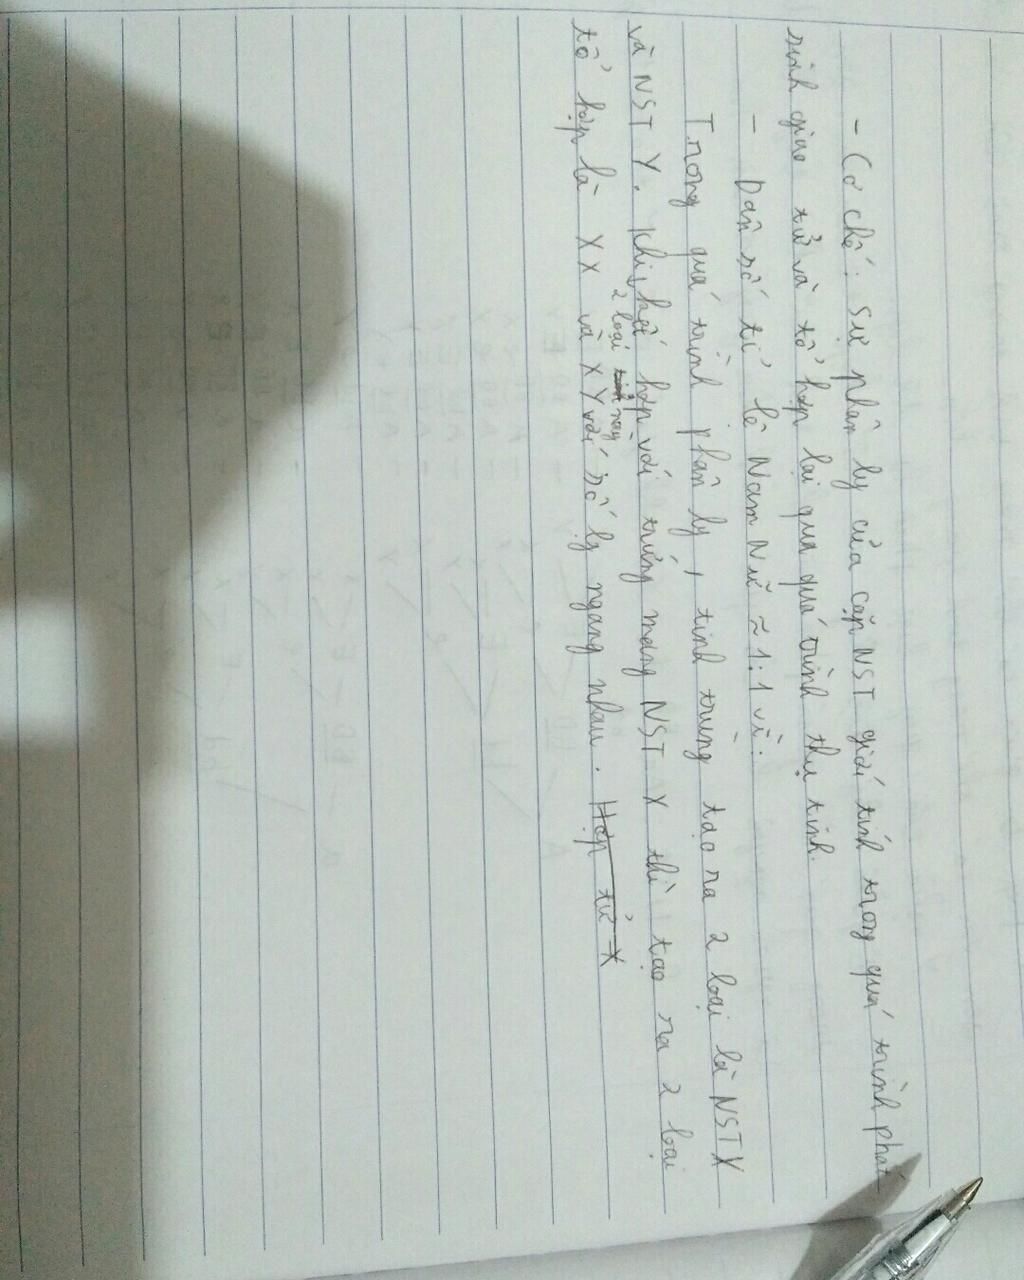 - Cơ chế: Sự phân ly của cặp NST giới tính trong quá trình phát
sinh giao tử và tổ hợp lại qua quá trình thụ tinh.
- Dân số tỉ lệ Nam Nữ ≈ 1:1 vì:
Trong quá trình phân ly, tinh trùng tạo ra 2 loại là NST X
và NST Y. Khi kết hợp với trứng mang NST X thì tạo ra 2 loại
2 loại này
tổ hợp là XX và XY với số lg ngang nhau. Hợp tử X